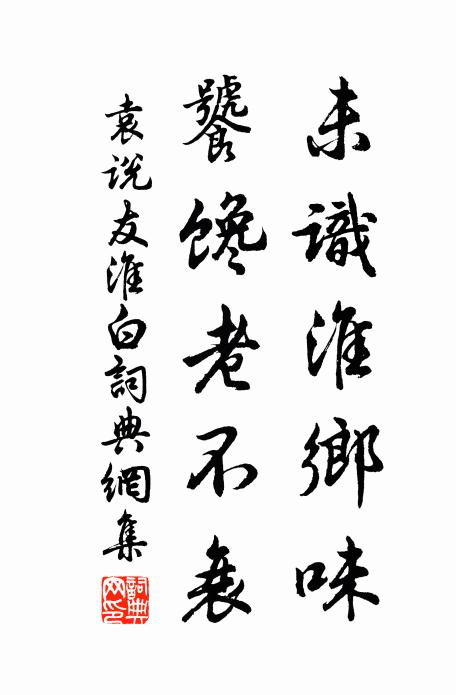 未識淮鄉味
饕馋老不衰
袁说友淮白詞典網集
詞典網印